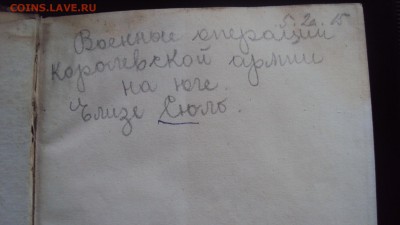 coins.lave.ru
5. 2а. 15
Военные операции
Королевской армии
на юге.
Элизе Сюль.